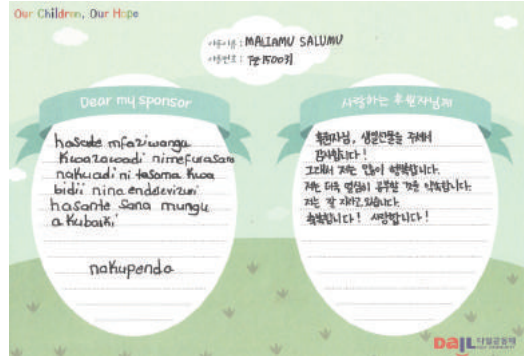 Our Children, Our Hope
아동이름 : MALIAMU SALUMU
아동번호 : TZ150031
Dear my sponsor
hasate mfaziwangu
Kwazawadi nimefurasana
nakuadi ni tasoma Kwa
bidii nina endeevizuri
hasante Sana mungu
akubariki
nakupenda
사랑하는 후원자님께
후원자님, 생일선물을 주셔서
감사합니다!
그래서 저는 많이 행복합니다.
저는 더욱 열심히 공부할 것을 약속합니다.
저는 잘 자라고 있습니다.
축복합니다! 사랑합니다!
DaiL 다일공동체